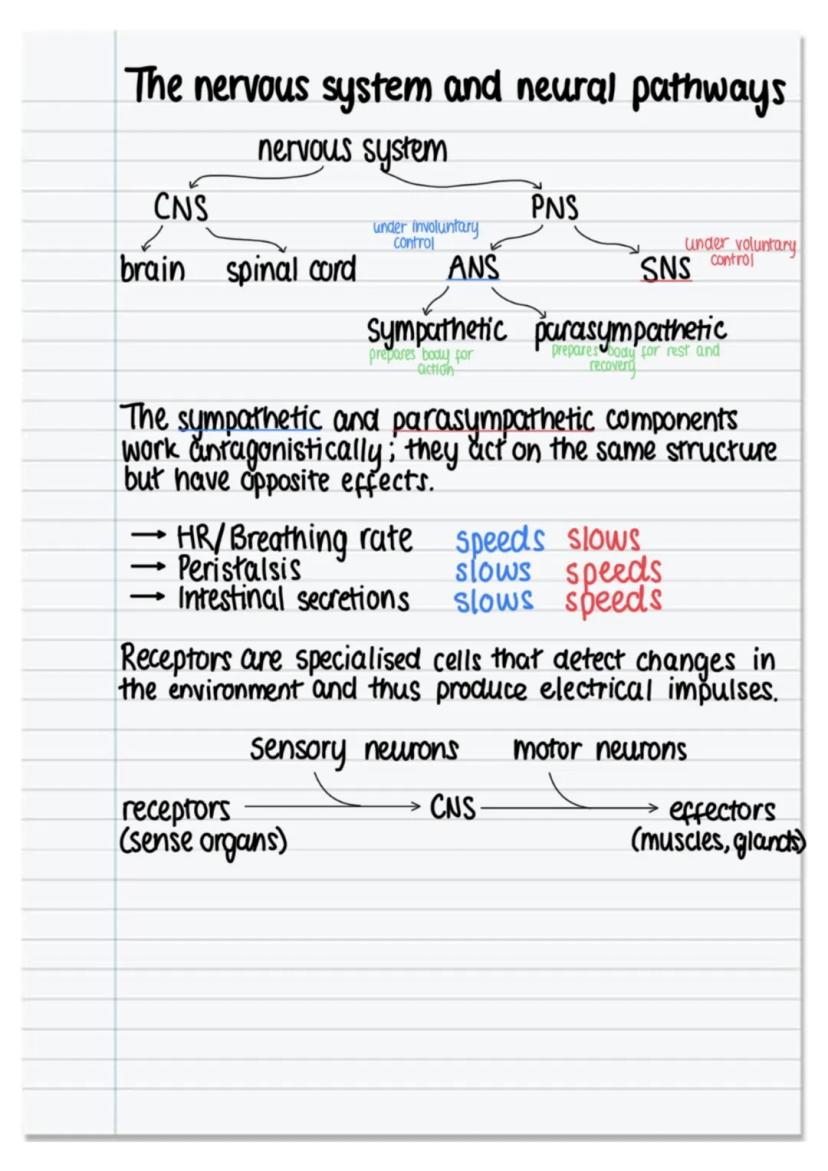 The nervous system and neural pathways
nervous system
CNS PNS
under involuntary
control
under voluntary
control
brain spinal cord ANS SNS
sympathetic parasympathetic
prepares body for
action
prepares body for rest and
recovery
The sympathetic and parasympathetic components
work antagonistically; they act on the same structure
but have opposite effects.
→ HR/Breathing rate speeds slows
→ Peristalsis slows speeds
→ Intestinal secretions slows speeds
Receptors are specialised cells that detect changes in
the environment and thus produce electrical impulses.
sensory neurons motor neurons
receptors CNS effectors
(sense organs) (muscles, glands)